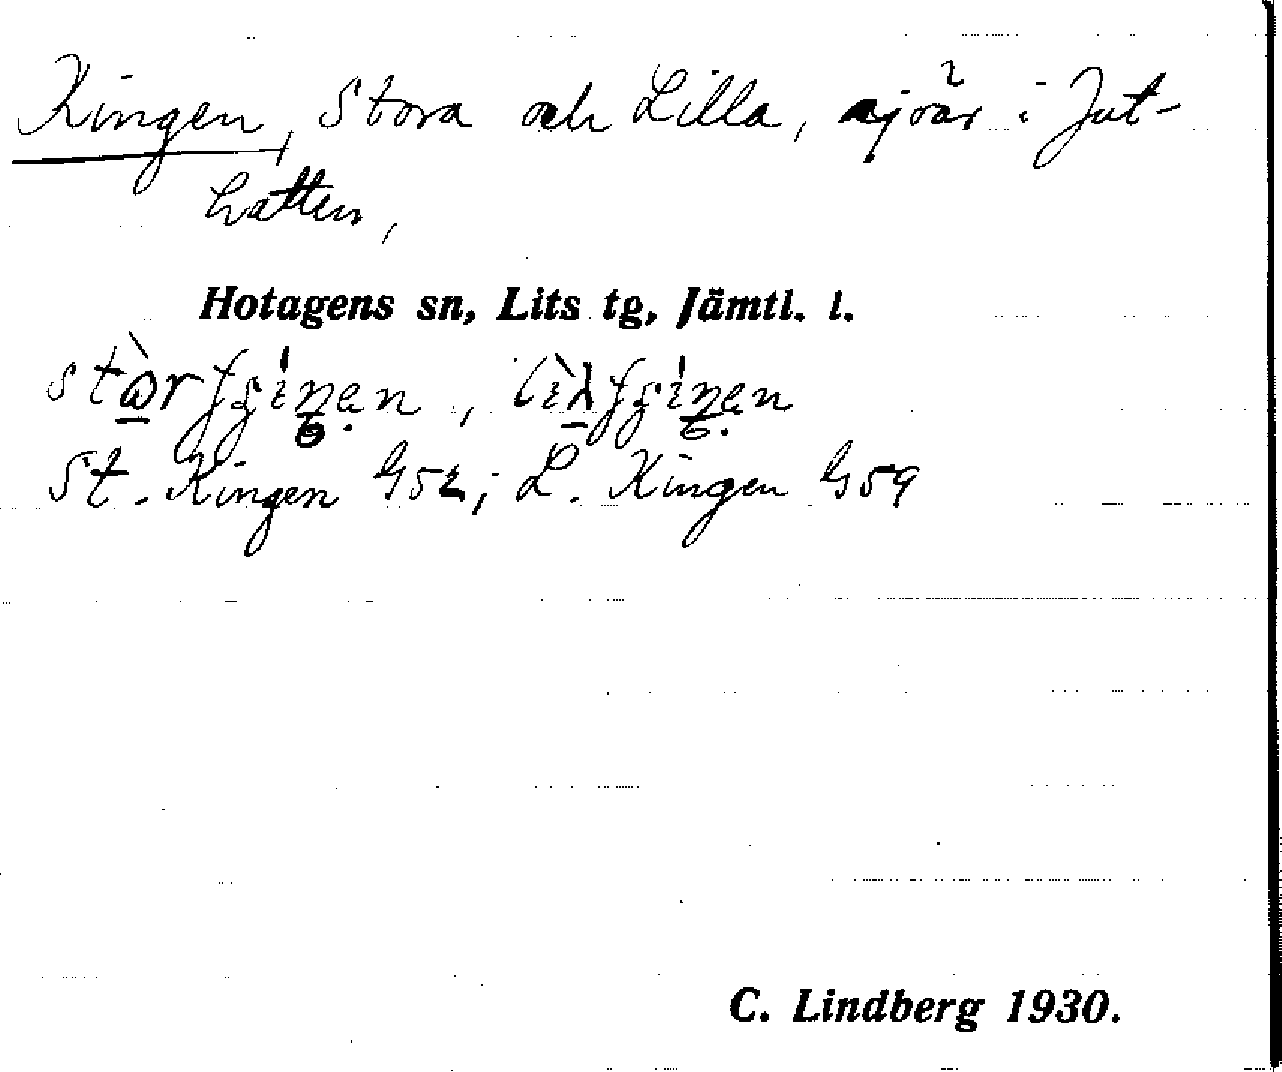 Kingen, Stora och Lilla, sjöar i Jut-
hatten,
Hotagens sn, Lits tg, Jämtl. l.
St. Kingen G52; L. Kingen G59
C. Lindberg 1930.